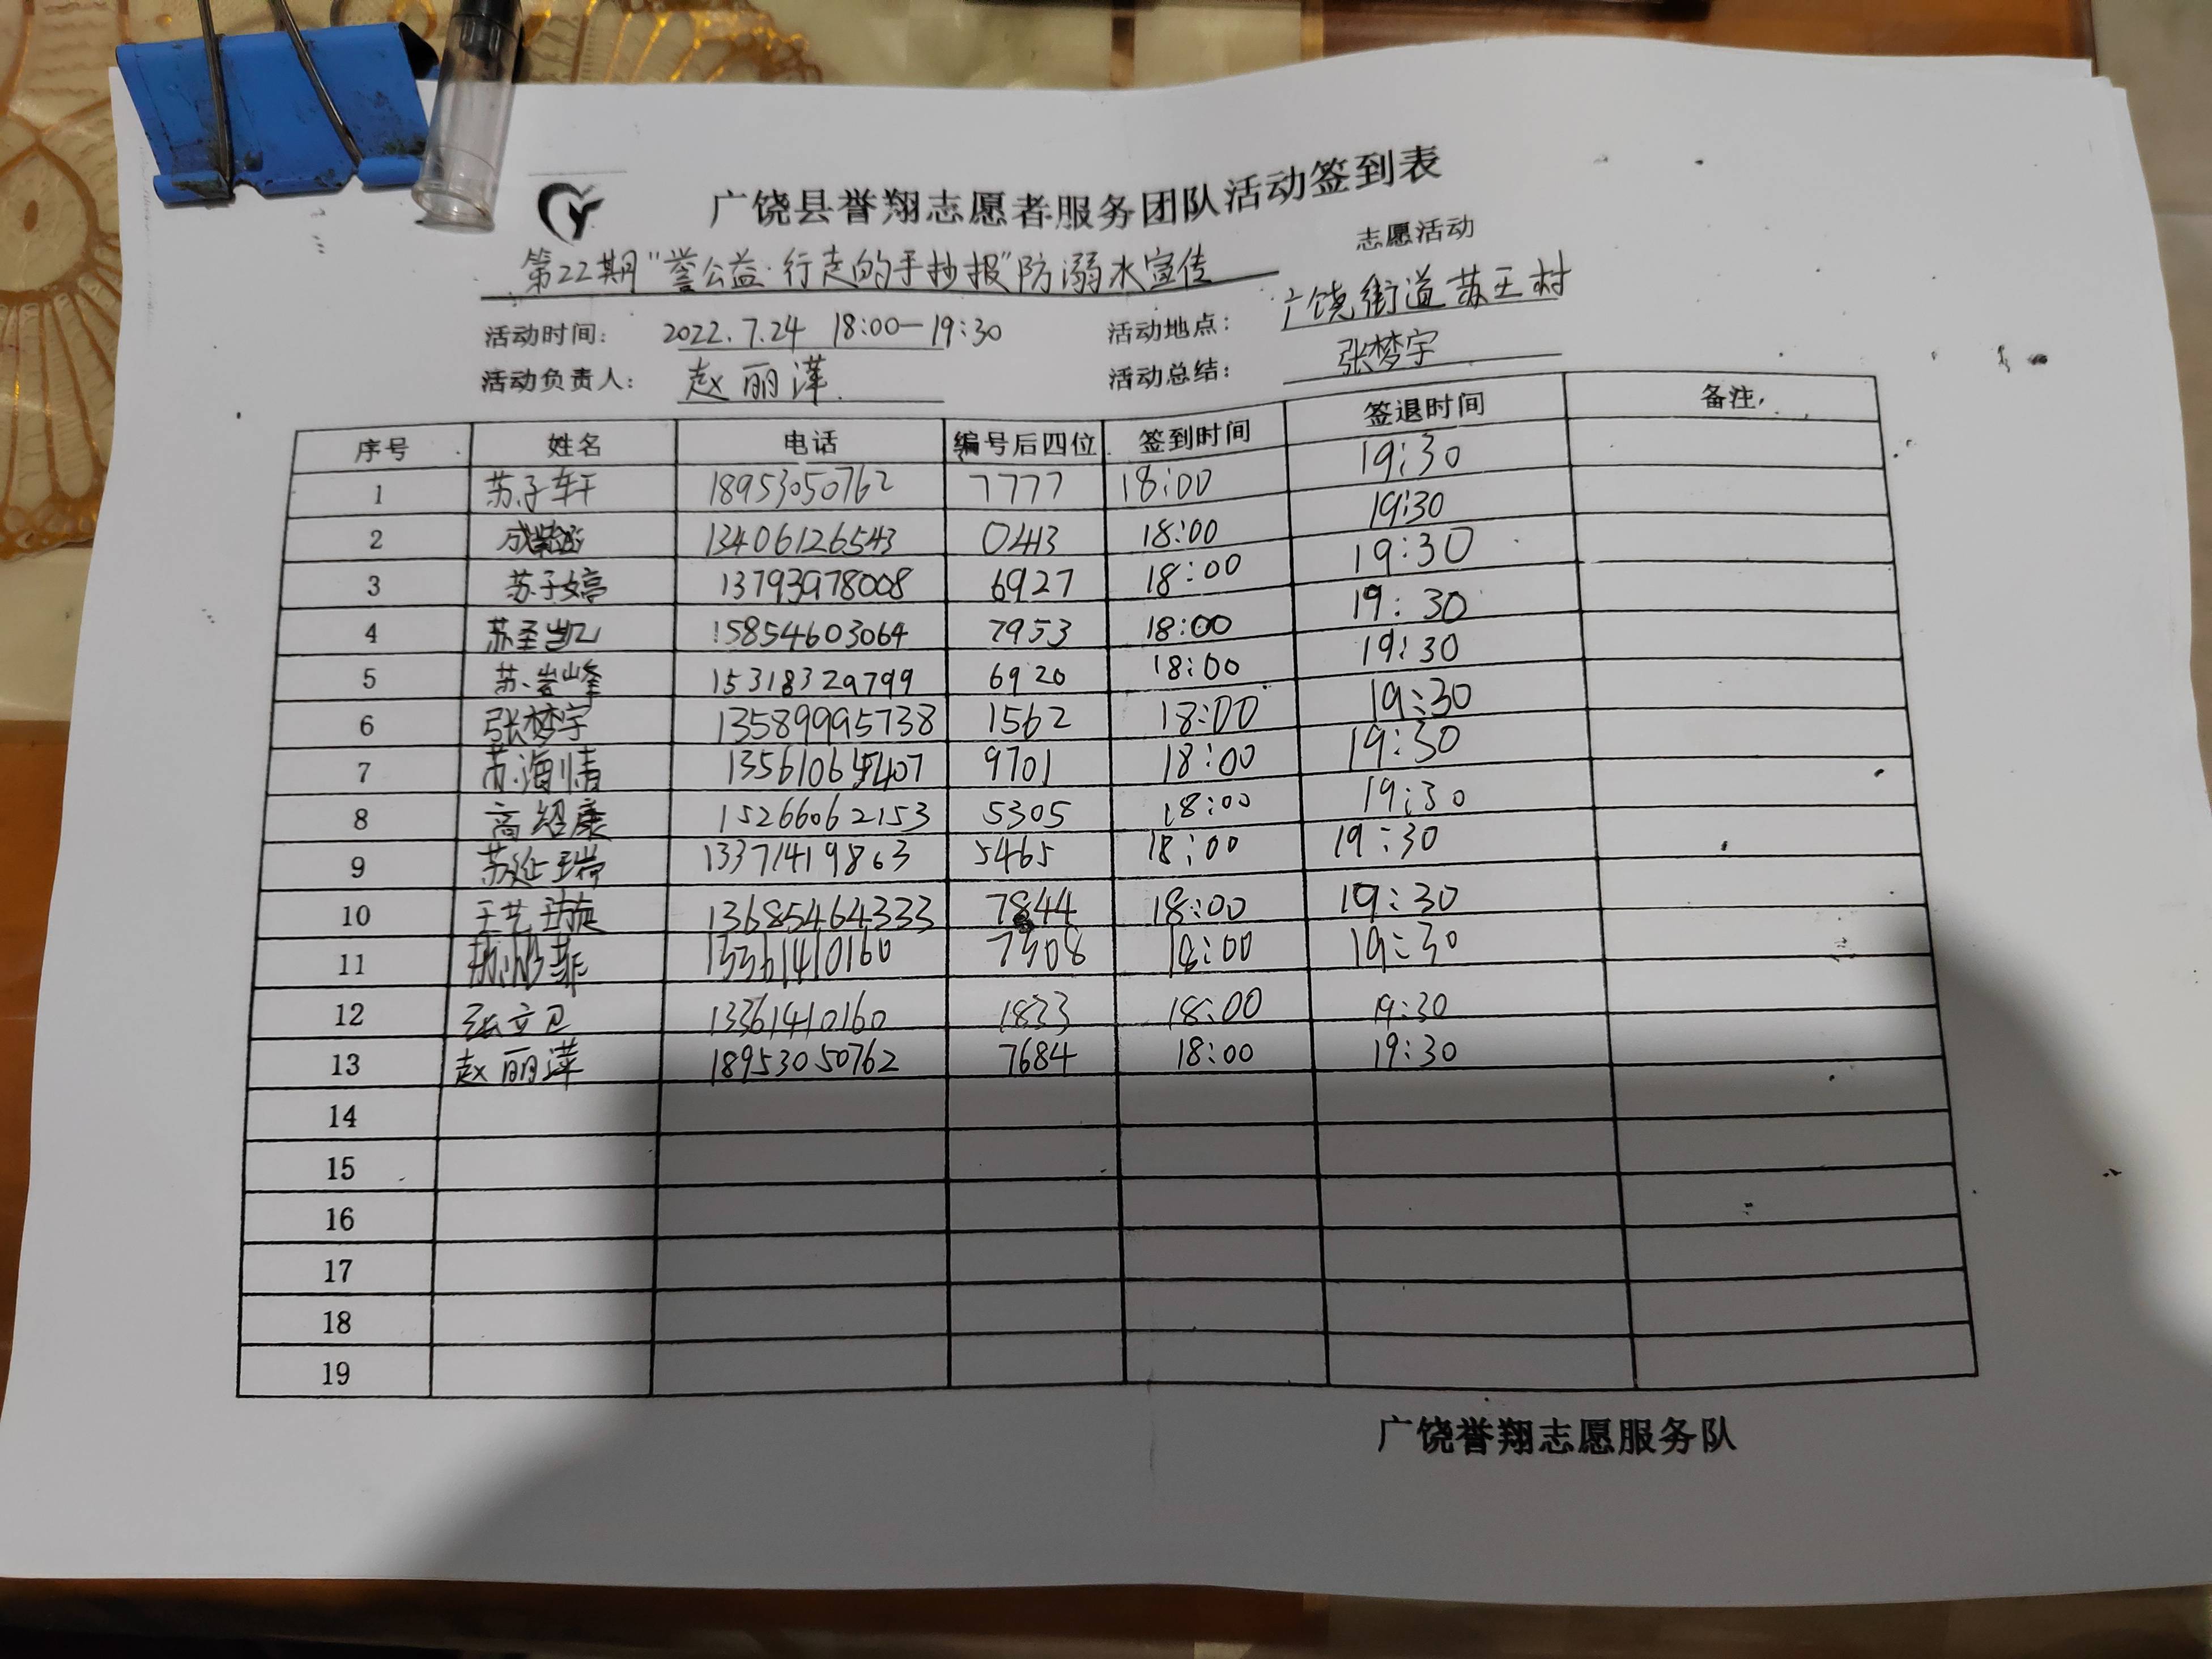 广饶县誉翔志愿者服务团队活动签到表
第22期"誉公益·行走的手抄报"防溺水宣传 志愿活动
活动时间: 2022.7.24 18:00—19:30 活动地点: 广饶街道苏王村
活动负责人: 赵丽萍 活动总结: 张梦宇
序号 姓名 电话 编号后四位 签到时间 签退时间 备注
1 苏子轩 18953050762 7777 18:00 19:30
2 13406126543 0413 18:00 19:30
3 苏子婷 13793978008 6927 18:00 19:30
4 苏圣凯 15854603064 7953 18:00 19:30
5 苏岩峰 15318329799 6920 18:00 19:30
6 张梦宇 13589995738 1562 18:00 19:30
7 苏海情 9701 18:00 19:30
8 高绍康 15266062153 5305 18:00 19:30
9 苏延瑞 13371419863 5465 18:00 19:30
10 王艺璇 13685464333 7844 18:00 19:30
11 13361410160 18:00 19:30
12 张立卫 13361410160 1823 18:00 19:30
13 赵丽萍 18953050762 7684 18:00 19:30
14
15
16
17
18
19
广饶誉翔志愿服务队